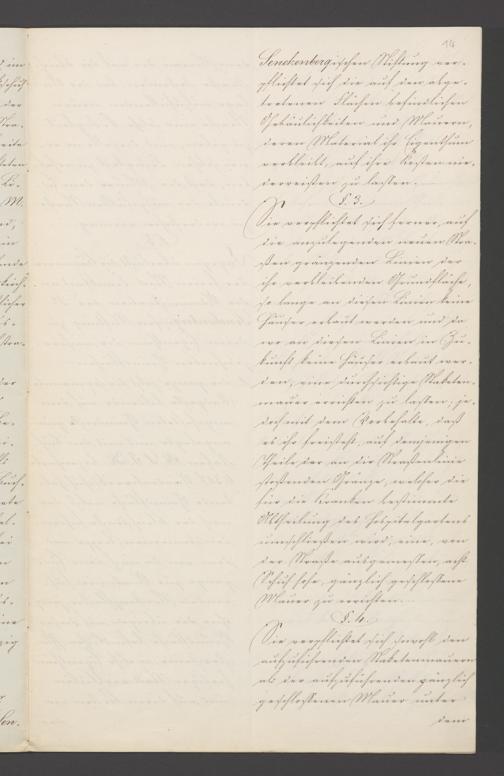 14
Senckenbergischen Stiftung ver-
pflichtet sich die auf den abge-
tretenen Flächen befindlichen
Gebäulichkeiten und Mauern,
deren Material ihr Eigenthum
verbleibt, auf ihre Kosten nie-
derreißen zu lassen.
§. 3.
Sie verpflichtet sich ferner, auf
die anzulegenden neuen Stra-
ßen gränzenden Linien der
ihr verbleibenden Grundfläche,
so lange an diesen Linien keine
Häuser erbaut werden und da
wo an diesen Linien in Zu-
kunft keine Häuser erbaut wer-
den, eine durchsichtige Staketen-
mauer errichten zu lassen, je-
doch mit dem Vorbehalte, daß
es ihr freisteht, auf demjenigen
Theile der an die Straßenlinie
stoßenden Gränze, welcher die
für die Kranken bestimmte
Abtheilung des Hospitalgartens
umschließen wird, eine, von
der Straße ausgemessen, acht
Schuh hohe, gänzlich geschlossene
Mauer zu errichten.
§. 4.
Sie verpflichtet sich sowohl den
aufzuführenden Staketenmauern
als der aufzuführenden gänzlich
geschlossenen Mauer unter
dem